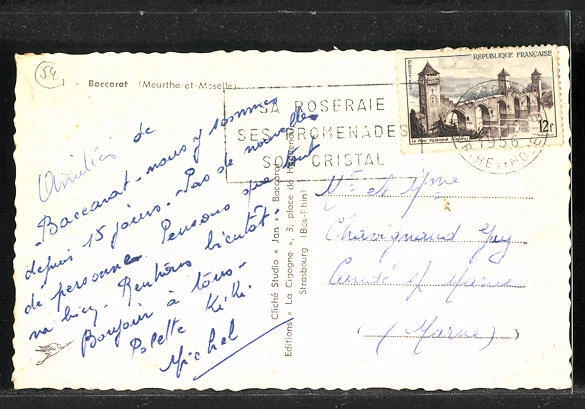 54
- Baccarat (Meurthe-et-Moselle)
Amitiés de
Baccarat - nous y sommes
depuis 15 jours. Pas de nouvelles
de personne. Pensons que tout
va bien. Rentrons bientôt -
Bonjour à tous -
Polette Kiki
Michel
SA ROSERAIE
SES PROMENADES
SON CRISTAL
REPUBLIQUE FRANÇAISE
12f
1956
Cliché Studio « Jan » Baccarat
Editions « La Cigogne », 3, place de Haguenau
Strasbourg (Bas-Rhin)
Mr et Mme
Chavignaud Guy
Condé s/ Marne
(Marne)